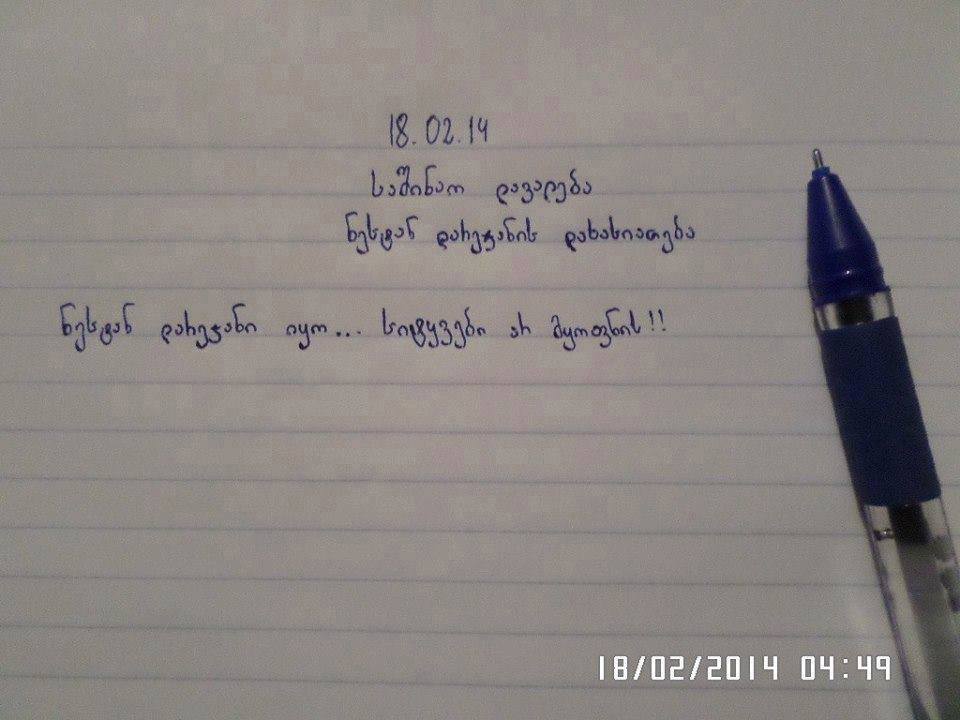 18.02.14
საშინაო დავალება
ნესტან დარეჯანის დახასიათება
ნესტან დარეჯანი იყო... სიტყვები არ მყოფნის!!
18/02/2014 04:49